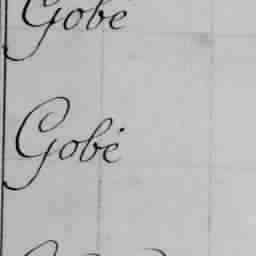 Gobé
Gobé